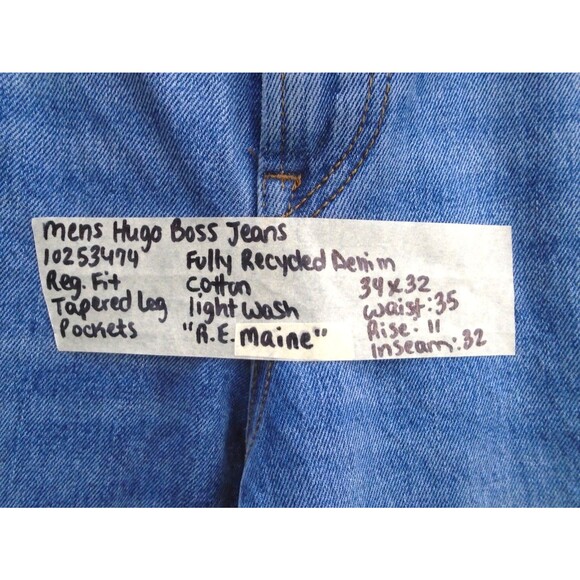 mens Hugo Boss Jeans
10253474 Fully Recycled Denim
Reg. Fit Cotton 34x32
Tapered Leg light wash Waist: 35
Pockets "R.E. Maine" Rise: 11
Inseam: 32